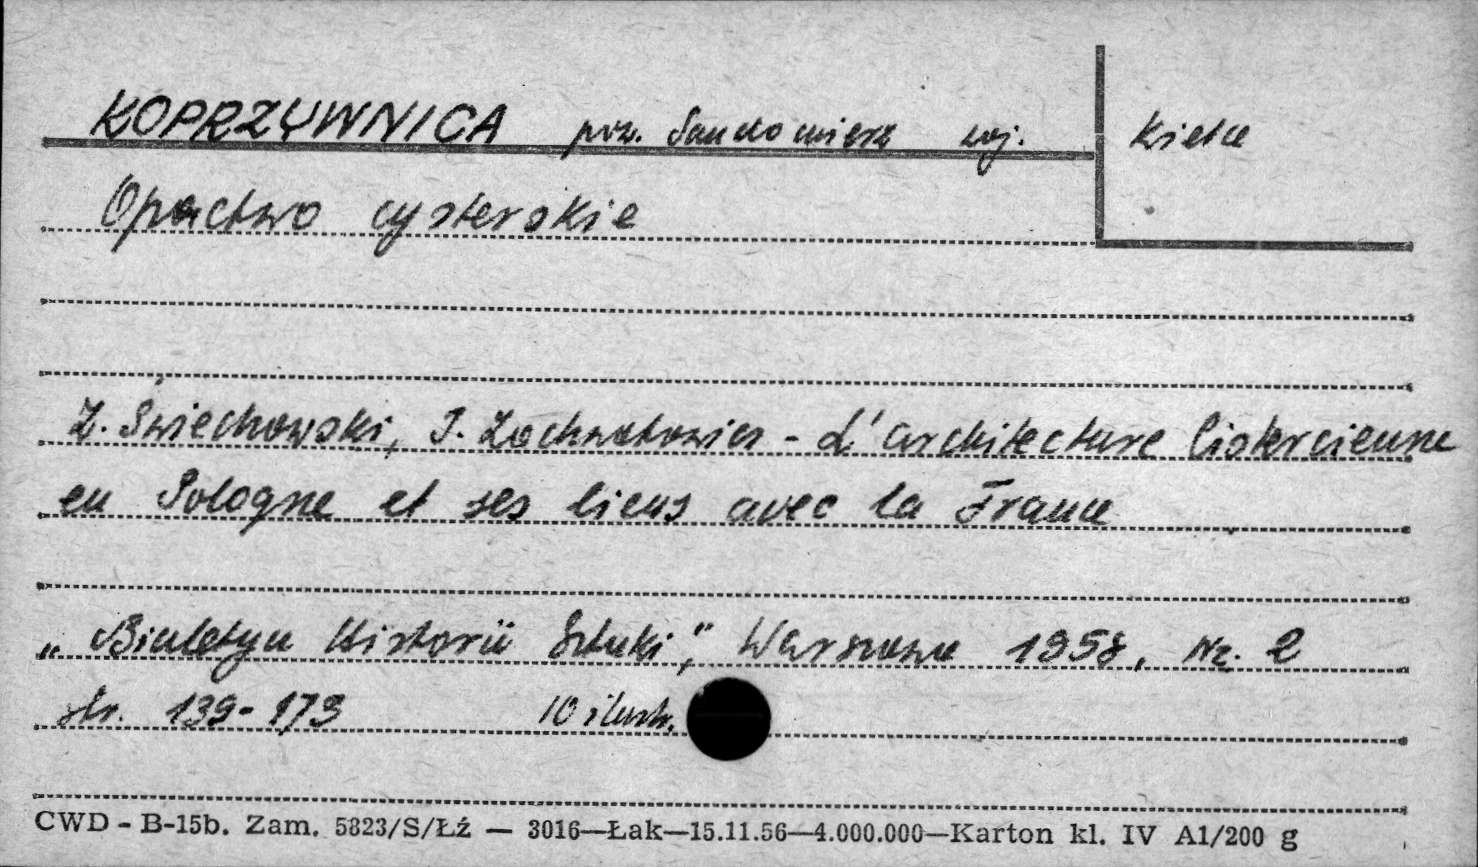 KOPRZYWNICA pow. Sandomierz woj. Kielce
Opactwo cysterskie
Z. Świechowski, J. Zachwatowicz - L'architecture Cistercienne
en Pologne et ses liens avec la France
„Biuletyn Historii Sztuki", Warszawa 1958, Nr. 2
str. 139-173 10 ilustr.
CWD - B-15b. Zam. 5823/S/Łź — 3016—Łak—15.11.56—4.000.000—Karton kl. IV A1/200 g